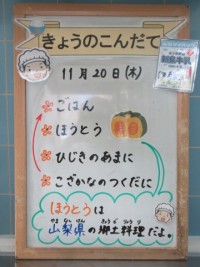 きょうのこんだて
11月20日(木)
ごはん
ほうとう
ひじきのあまに
こざかなのつくだに
ほうとうは
山梨県の郷土料理だよ。